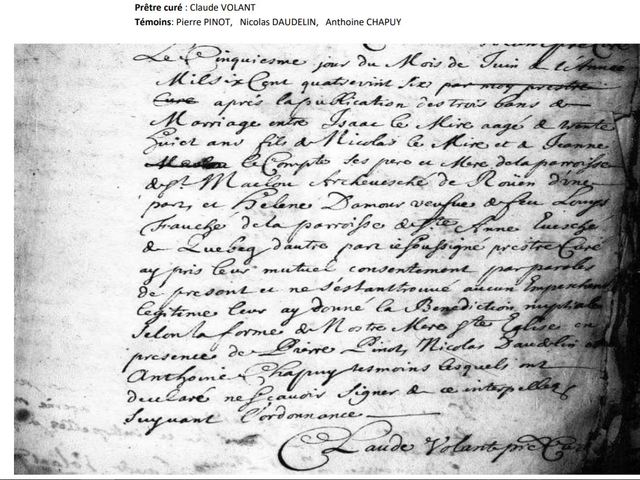 Prêtre curé : Claude VOLANT
Témoins: Pierre PINOT, Nicolas DAUDELIN, Anthoine CHAPUY
Le Cinquiesme jour du Mois de Juin de l'Année
Mil six Cent quatrevint six par moy prestre
Curé aprés la publication des trois bans de
Marriage entre Isaac le Mire aagé de trente
huict ans fils de Nicolas le Mire et de Jeanne
le Compte ses pere et Mere de la parroisse
de St Maclou Archevesché de Roüen d'une
part, et Hélene Damour veufve de feu Louys
Fauché de la parroisse de Ste Anne Evesché
de Quebeq d'autre part ie soussigné prestre Curé
ay pris leur mutuel consentement par paroles
de present et ne s'estant trouvé aucun Empeschement
legitime leur ay donné la Benediction nuptiale
selon la forme de Nostre Mere Ste Eglise en
presence de Pierre Pinot, Nicolas Daudelin et
Anthoine Chapuy tesmoins lesquels ont
declaré ne scavoir signer de ce interpellez
suyvant l'ordonnance
Claude Volant pre Curé